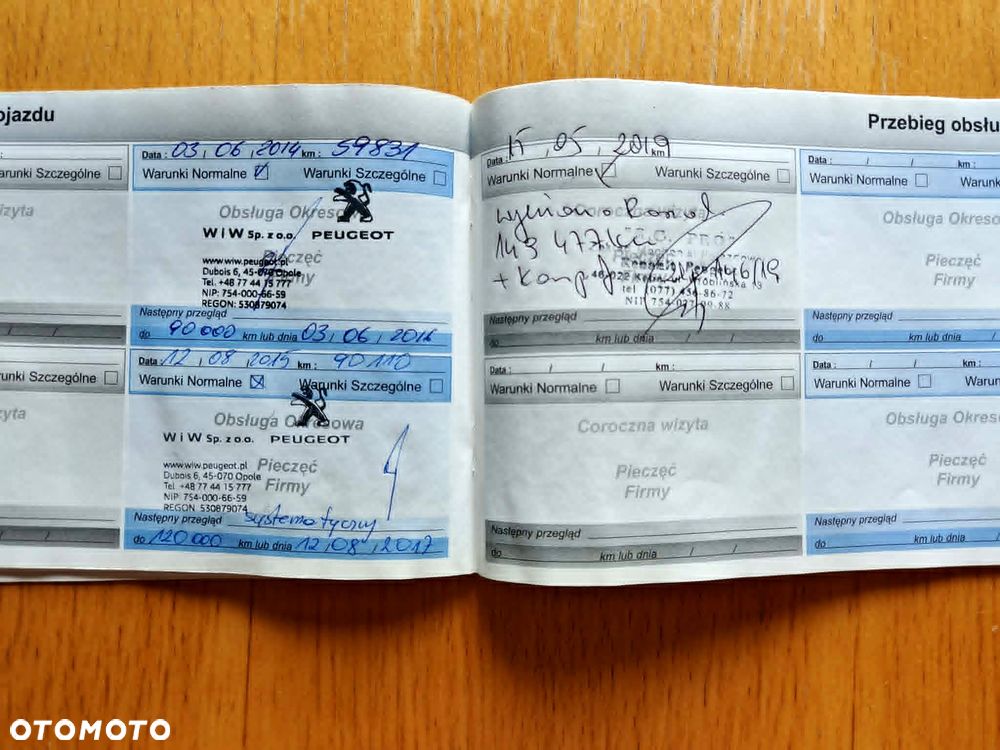 ojazdu
Przebieg obsłu
Warunki Szczególne
wizyta
Data : 03 / 06 / 2014 km : 59831
Warunki Normalne Warunki Szczególne
Obsługa Okresowa
WiW Sp. z o.o. PEUGEOT
Pieczęć
Firmy
www.wiw.peugeot.pl
Dubois 6, 45-070 Opole
Tel. +48 77 44 15 777
NIP: 754-000-66-59
REGON: 530879074
Następny przegląd
do 90000 km lub dnia 03, 06, 2016
unki Szczególne
zyta
Data : 12, 08, 2015 km : 90110
Warunki Normalne Warunki Szczególne
Obsługa Okresowa
WiW Sp. z o.o. PEUGEOT
www.wiw.peugeot.pl
Dubois 6, 45-070 Opole
Tel. +48 77 44 15 777
NIP: 754-000-66-59
REGON: 530879074
Pieczęć
Firmy
Następny przegląd systematyczny
do 120000 km lub dnia 12, 08, 2017
Data : 15, 05, 2019 km
Warunki Normalne Warunki Szczególne
143 477 km
Następny przegląd
do km lub dnia / /
Data : / / km :
Warunki Normalne Warunki Szczególne
Coroczna wizyta
Pieczęć
Firmy
Następny przegląd
do km lub dnia / /
Data : / / km :
Warunki Normalne Warunk
Obsługa Okres
Pieczęć
Firmy
Następny przegląd
do km lub dnia /
Data : / / km :
Warunki Normalne War
Obsługa Okreso
Pieczęć
Firmy
Następny przegląd
do km lub dnia /
OTOMOTO